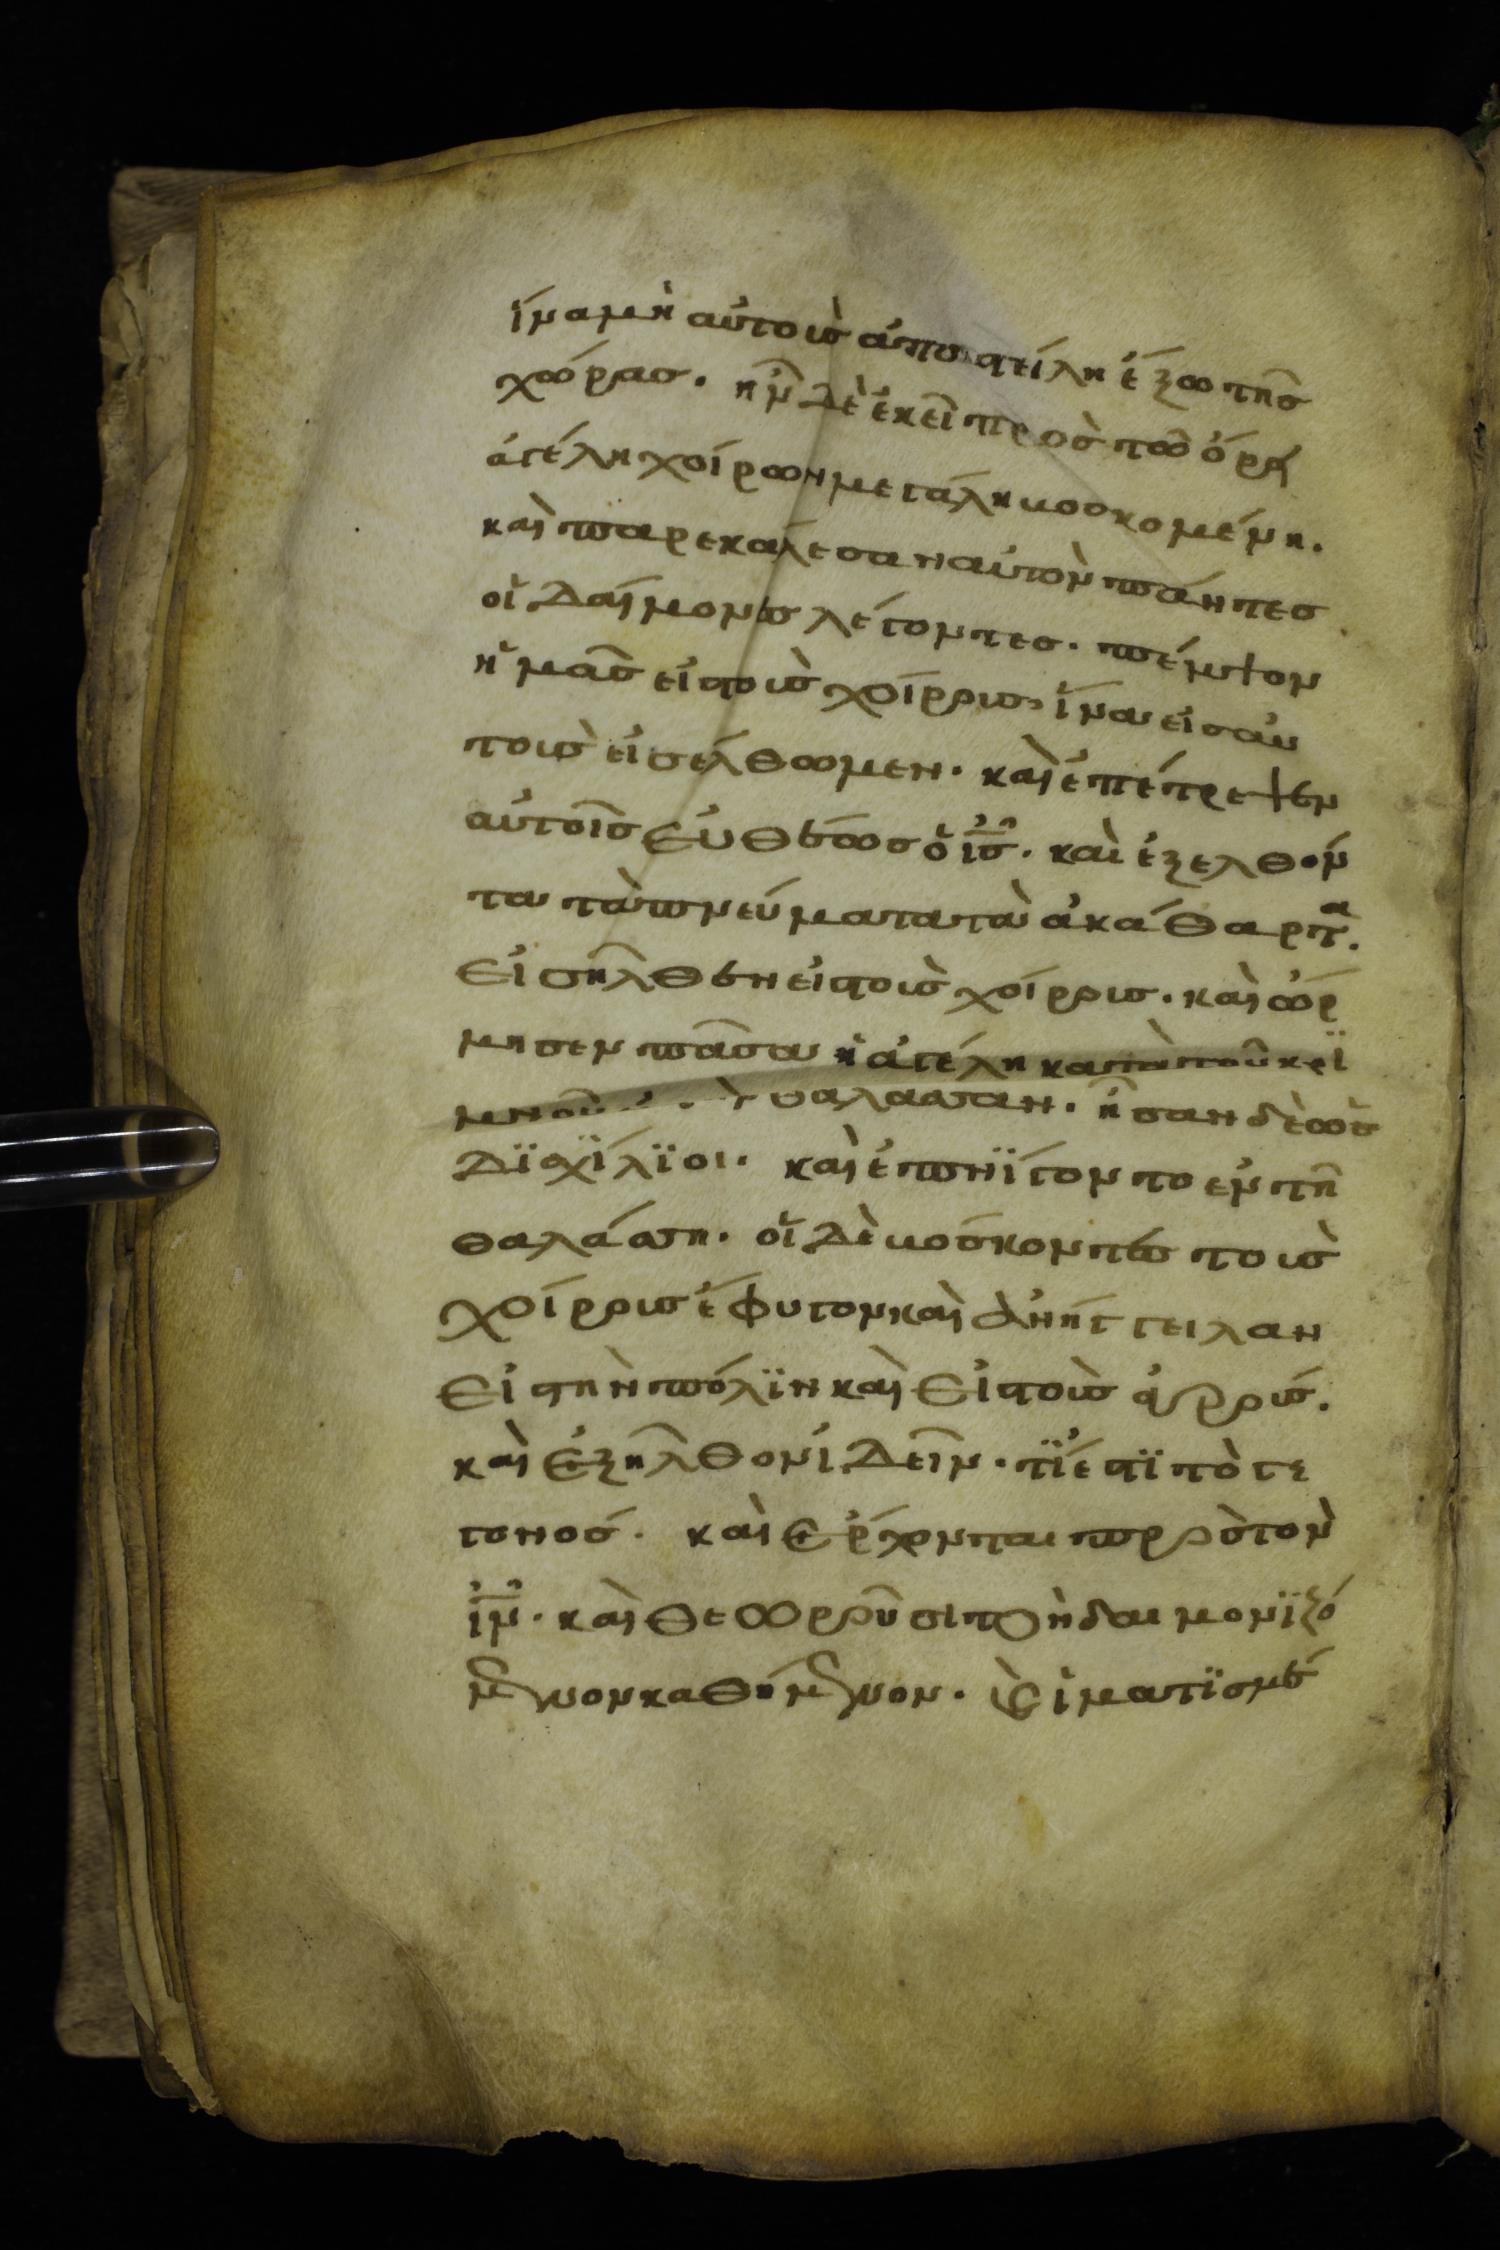 ἵνα μὴ αὐτοὺς ἀποστείλη ἔξω τῆς
χώρας. ἦν δὲ ἐκεῖ πρὸς τῶ ὄρει
ἀγέλη χοίρων μεγάλη βοσκομένη.
καὶ παρεκάλεσαν αὐτὸν πάντες
οἱ δαίμονες λέγοντες. πέμψον
ἡμᾶς εἰς τοὺς χοίρους ἵνα εἰς αὐ
τοὺς εἰσέλθωμεν. καὶ ἐπέτρεψεν
αὐτοῖς εὐθέως ὁ ις. καὶ ἐξελθόν
τα τὰ πνεύματα τὰ ἀκάθαρτα.
εἰσῆλθεν εἰς τοὺς χοίρους. καὶ ὥρ
μησεν πᾶσα ἡ ἀγέλη κατὰ τοῦ κρϊ
μνοῦ θαλασσαν. ἦσαν δὲ ὡς
δϊσχϊλϊοι. καὶ ἐπνϊγοντο ἐν τῆ
θαλάσση. οἱ δὲ βόσκοντες τοὺς
χοίρους ἔφυγον καὶ ἀνήγγειλαν
εἰς τὴν πόλϊν καὶ εἰς τοὺς ἀγρούς.
καὶ ἐξῆλθον ἰδεῖν. τΐ ἐστϊ τὸ γε
γονός. καὶ ἔρχονται πρὸς τὸν
ιν. καὶ θεωροῦσι τὸν δαιμονϊζό
μενον καθήμενον. καὶ ἱματϊσμέ